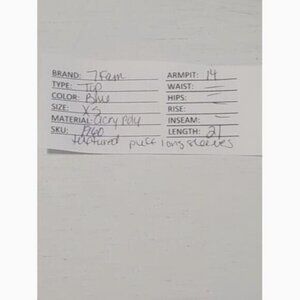 BRAND: 7 Fam ARMPIT: 14
TYPE: Top WAIST: –
COLOR: Blue HIPS: –
SIZE: XS RISE: –
MATERIAL: acry Poly INSEAM: –
SKU: LENGTH: 21
textured puff long sleeves